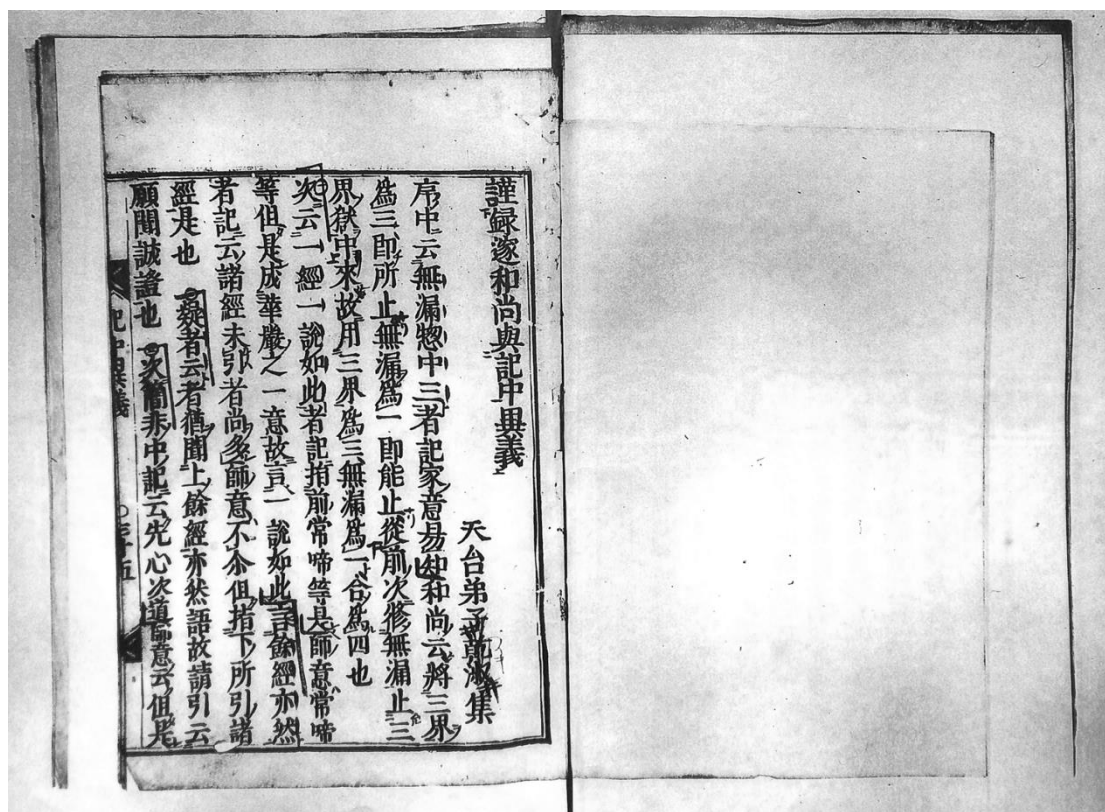 謹録邃和尚與記中異義
天台弟子乾淑集
序中云無漏惣中三者記家意易知和尚云將三界
爲三即所止無漏爲一即能止從前次修無漏止三
界獄中來故用三界爲三無漏爲一合爲四也
次云一經一說如此者記指前常啼等是師意常啼
等但是成華嚴之一意故言一說如此言餘經亦然
者記云諸經未引者尚多師意不尒但指下所引諸
經是也 疑者云者猶聞上餘經亦然語故請引云
願聞誠證也 次簡非中記云先心次道師意云但是
記中異義